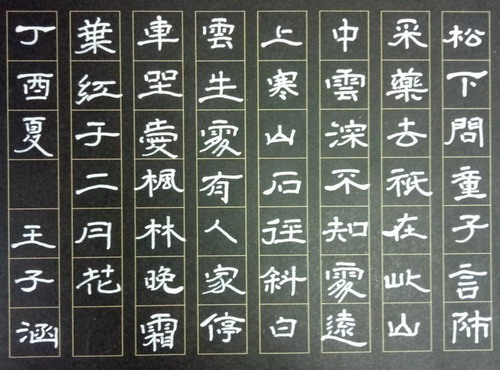 松下問童子言師
采藥去祇在此山
中雲深不知處遠
上寒山石徑斜白
雲生處有人家停
車坐愛楓林晚霜
葉紅于二月花
丁酉夏 王子涵